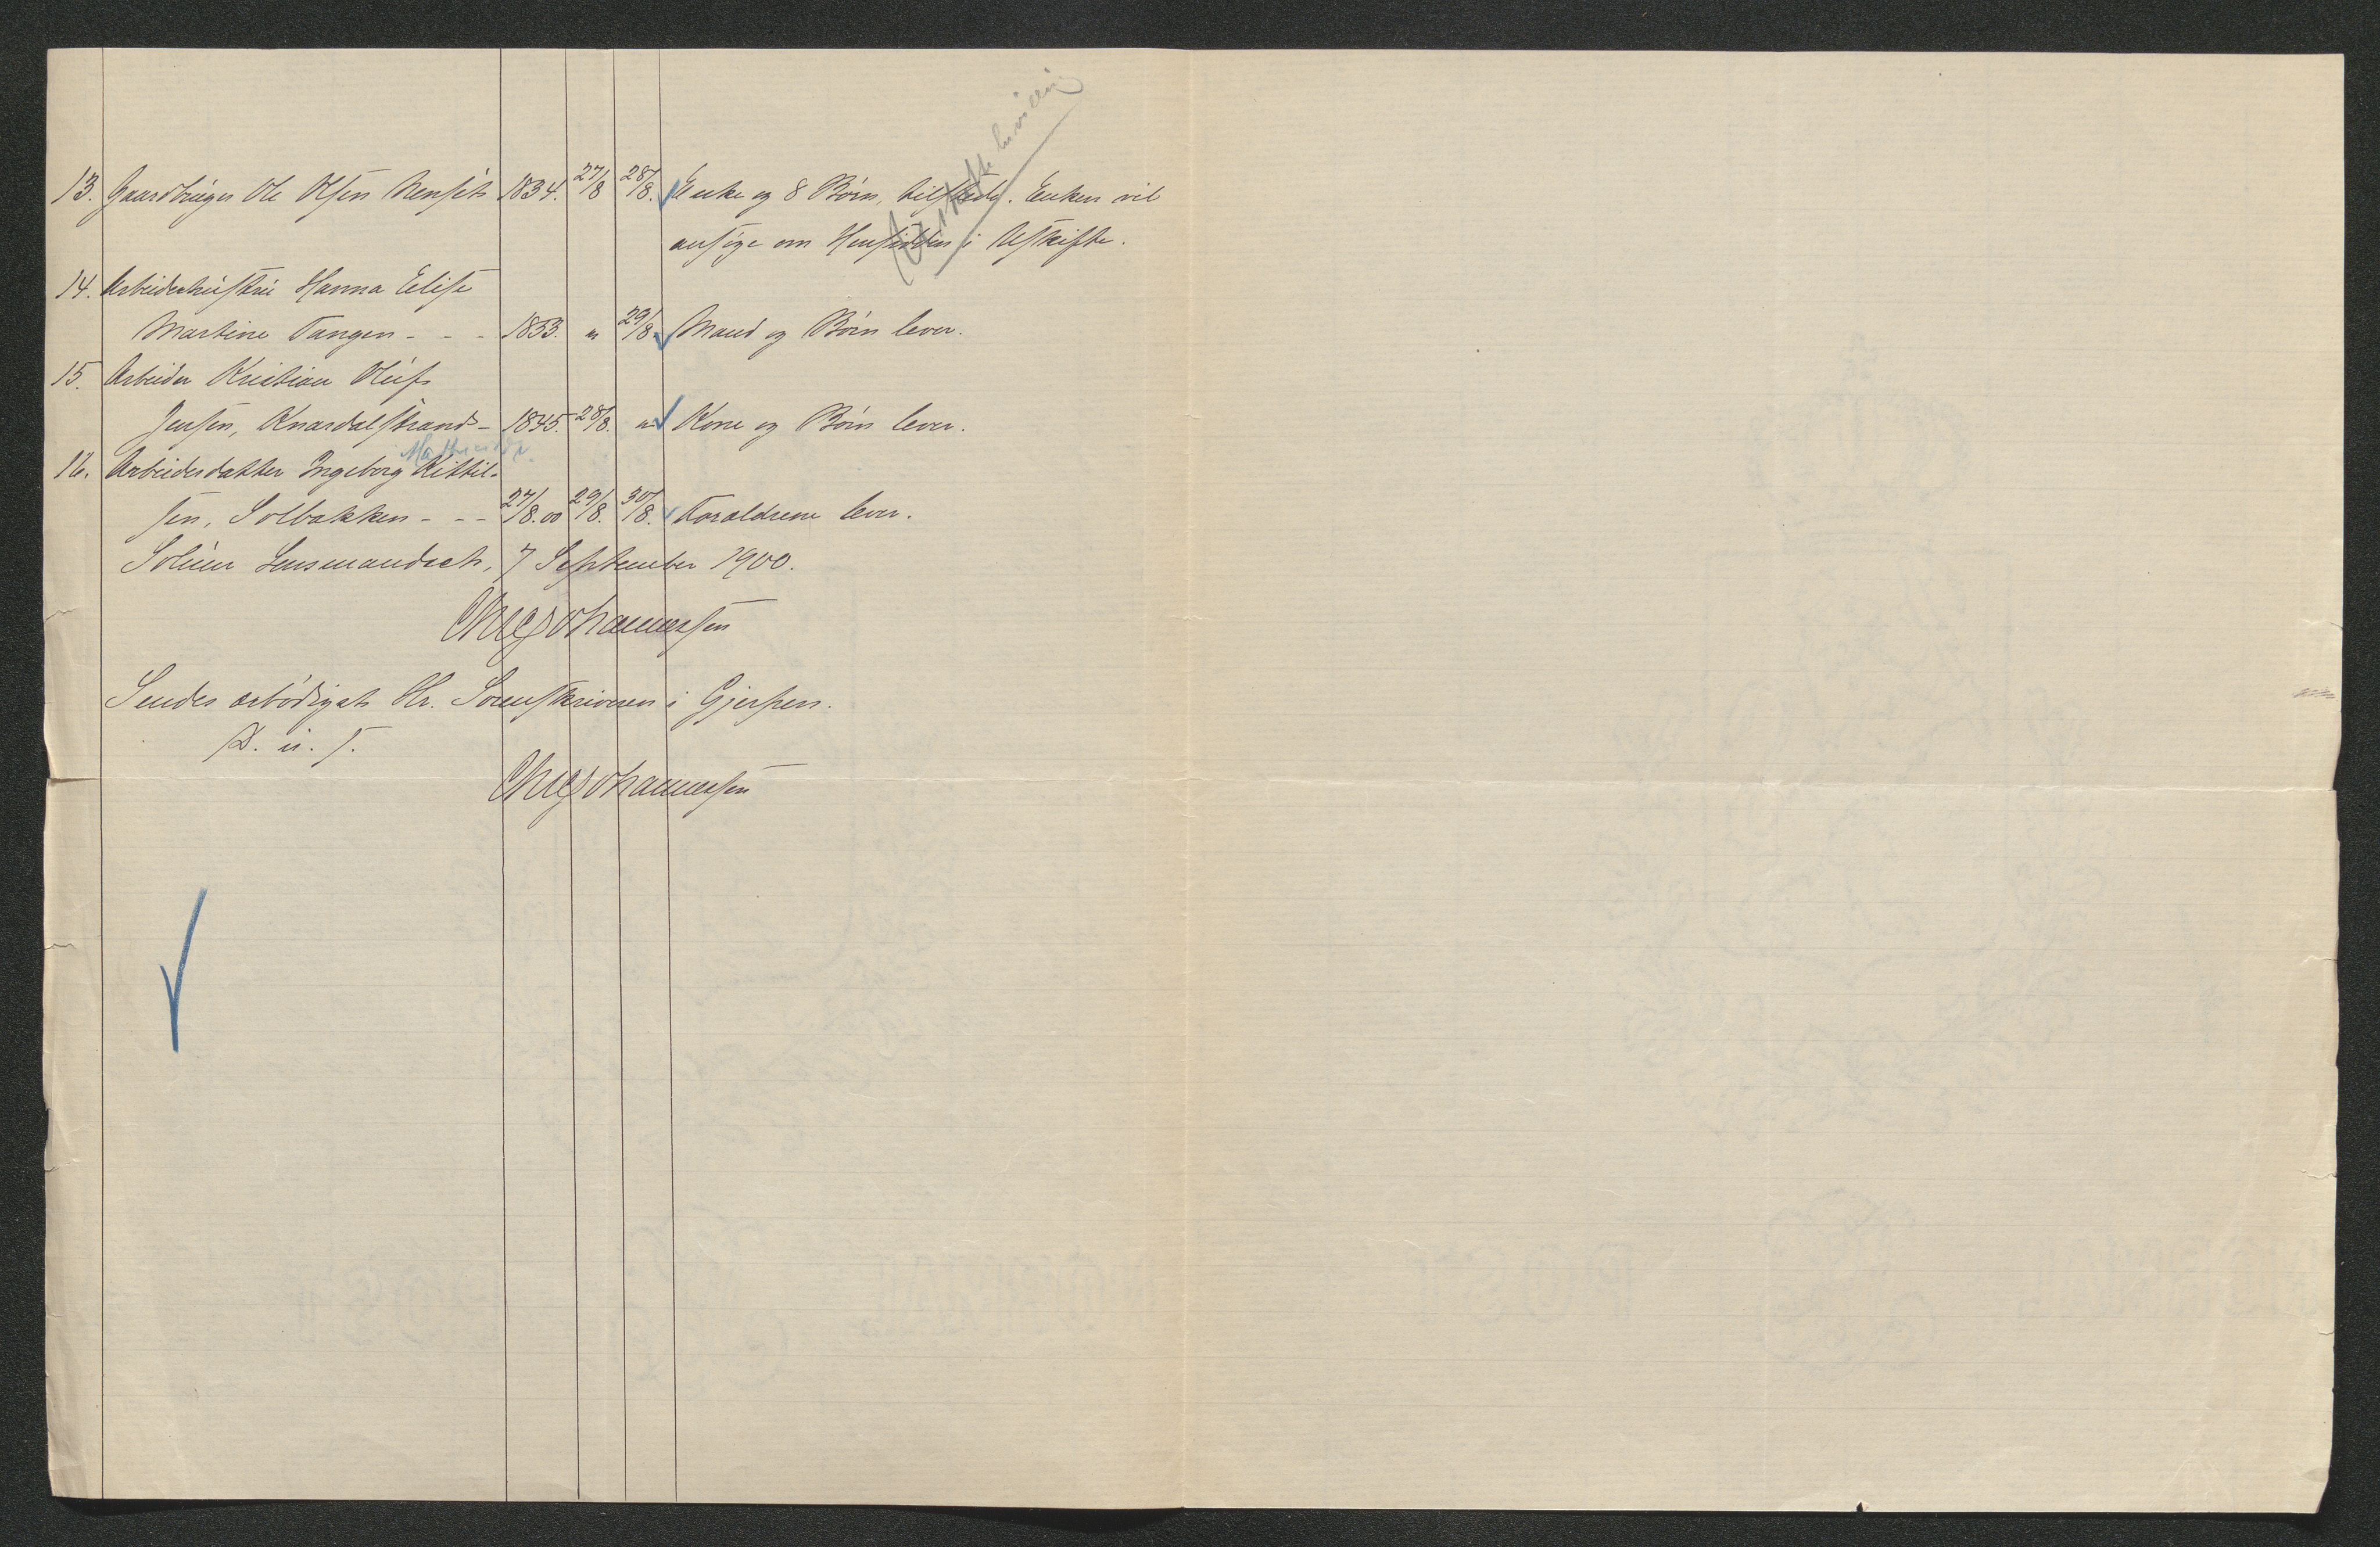 13. Gaardbruger Ole Olsen Nenset 1834. 27/8 28/8. Enke og 8 Börn, tilstede. Enken vil
ansöge om Hensidden i Uskifte.
14. Arbeiderhustru Hanna Elise
Martine Tangen - - - 1833. " 29/8. Mand og Börn lever.
15. Arbeider Kristian Oluf
Jensen, Knardalstrand - 1845. 28/8. " Kone og Börn lever.
16. Arbeiderdatter Ingeborg Kittil-
sen, Solbakken - - - 27/8.00 29/8. 30/8. Foraldrene lever.
Solum Lensmandset, 7 September 1900.
Chr Johannessen
Sendes ærbödigst Hr. Sorenskriveren i Gjerpen.
D. u. s.
Chr Johannessen